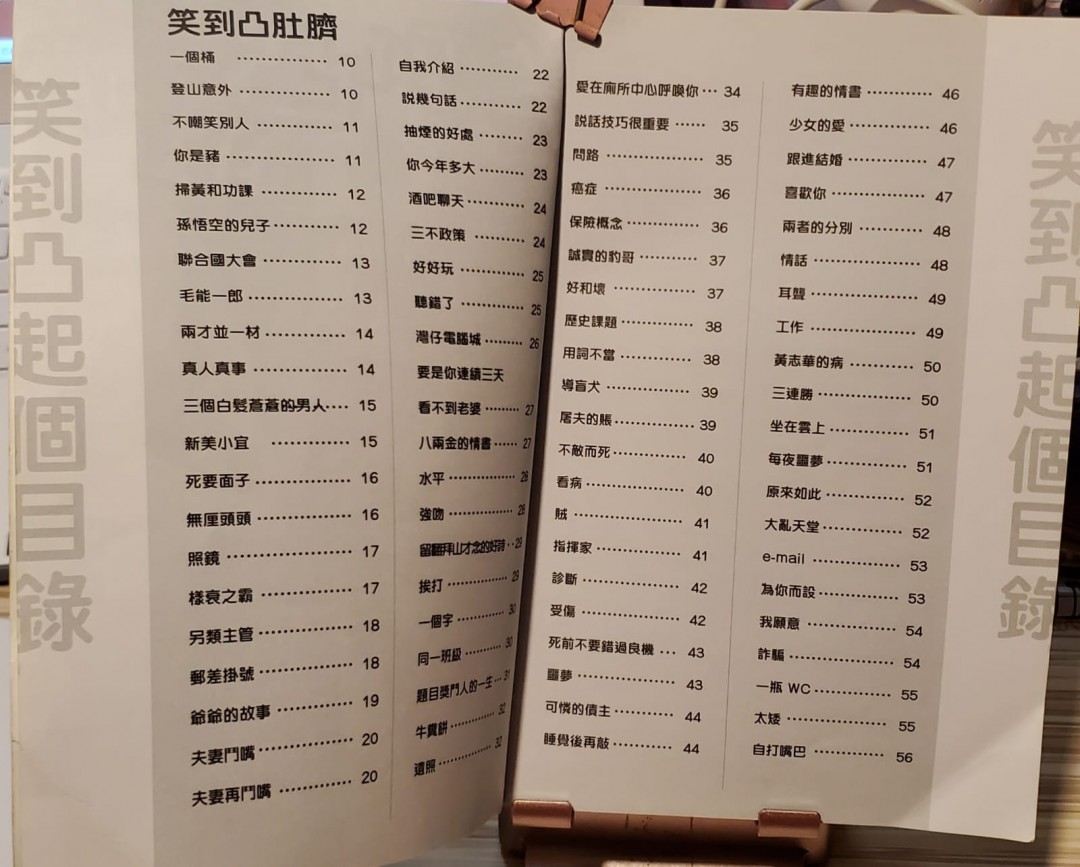 笑到凸肚臍
笑到凸起個目錄
一個桶 ················ 10
登山意外 ················ 10
不嘲笑別人 ················ 11
你是豬 ················ 11
掃黃和功課 ················ 12
孫悟空的兒子 ················ 12
聯合國大會 ················ 13
毛能一郎 ················ 13
兩才並一材 ················ 14
真人真事 ················ 14
三個白髮蒼蒼的男人 ···· 15
新美小宜 ················ 15
死要面子 ················ 16
無厘頭頭 ················ 16
照鏡 ················ 17
樣衰之霸 ················ 17
另類主管 ················ 18
郵差掛號 ················ 18
爺爺的故事 ················ 19
夫妻鬥嘴 ················ 20
夫妻再鬥嘴 ················ 20
自我介紹 ·········· 22
説幾句話 ·········· 22
抽煙的好處 ·········· 23
你今年多大 ·········· 23
酒吧聊天 ·········· 24
三不政策 ·········· 24
好好玩 ·········· 25
聽錯了 ·········· 25
灣仔電腦城 ·········· 26
要是你連續三天
看不到老婆 ·········· 27
八兩金的情書 ······ 27
水平 ·········· 28
強吻 ·········· 28
留翻拜山才念的好詩 ·· 29
挨打 ·········· 29
一個字 ·········· 30
同一班級 ·········· 30
題目獎門人的一生 ··· 31
牛糞餅 ·········· 32
遺照 ·········· 32
愛在廁所中心呼喚你 ··· 34
説話技巧很重要 ······ 35
問路 ················ 35
癌症 ················ 36
保險概念 ················ 36
誠實的豹哥 ················ 37
好和壞 ················ 37
歷史課題 ················ 38
用詞不當 ················ 38
導盲犬 ················ 39
屠夫的賬 ················ 39
不敵而死 ················ 40
看病 ················ 40
賊 ················ 41
指揮家 ················ 41
診斷 ················ 42
受傷 ················ 42
死前不要錯過良機 ··· 43
噩夢 ················ 43
可憐的債主 ············ 44
睡覺後再敲 ············ 44
有趣的情書 ············ 46
少女的愛 ············ 46
跟進結婚 ············ 47
喜歡你 ················ 47
兩者的分別 ············ 48
情話 ················ 48
耳聾 ················ 49
工作 ················ 49
黃志華的病 ············ 50
三連勝 ················ 50
坐在雲上 ············ 51
每夜噩夢 ············ 51
原來如此 ············ 52
大亂天堂 ············ 52
e-mail ················ 53
為你而設 ············ 53
我願意 ················ 54
詐騙 ················ 54
一瓶 WC ············ 55
太矮 ················ 55
自打嘴巴 ············ 56
笑到凸起個目錄